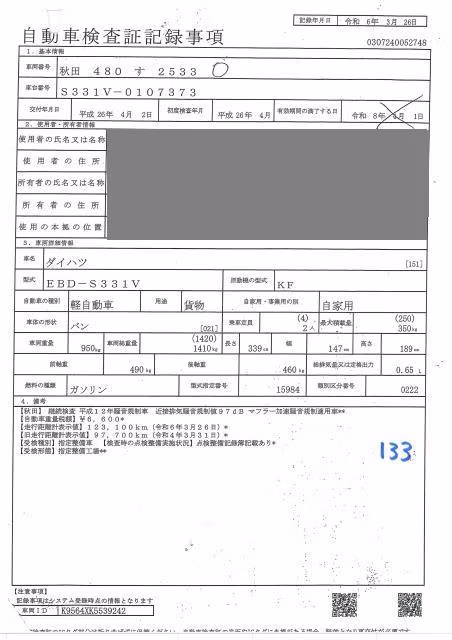 記録年月日 令和 6年 3月 26日
自動車検査証記録事項
0307240052748
1. 基本情報
車両番号 秋田 480 す 2533
車台番号 S331V-0107373
交付年月日 平成 26年 4月 2日 初度検査年月 平成 26年 4月 有効期間の満了する日 令和 8年 4月 1日
2. 使用者・所有者情報
使用者の氏名又は名称
使用者の住所
所有者の氏名又は名称
所有者の住所
使用の本拠の位置
3. 車両詳細情報
車名 ダイハツ [151]
型式 EBD-S331V 原動機の型式 KF
自動車の種別 軽自動車 用途 貨物 自家用・事業用の別 自家用
車体の形状 バン [021] 乗車定員 (4) 2人 最大積載量 (250) 350kg
車両重量 950kg 車両総重量 (1420) 1410kg 長さ 339cm 幅 147cm 高さ 189cm
前軸重 490kg 後軸重 460kg 総排気量又は定格出力 0.65 L
燃料の種類 ガソリン 型式指定番号 15984 類別区分番号 0222
4. 備考
【秋田】 継続検査 平成12年騒音規制車 近接排気騒音規制値97dB マフラー加速騒音規制適用車**
【自動車重量税額】¥6,600*
【走行距離計表示値】123,100km(令和6年3月26日)*
【旧走行距離計表示値】97,700km(令和4年3月31日)*
【受検種別】指定整備車 【検査時の点検整備実施状況】点検整備記録簿記載あり*
【受検形態】指定整備工場**
133
【注意事項】
記録事項はシステム登録時点の情報となります
車両ID K9564XK5539242